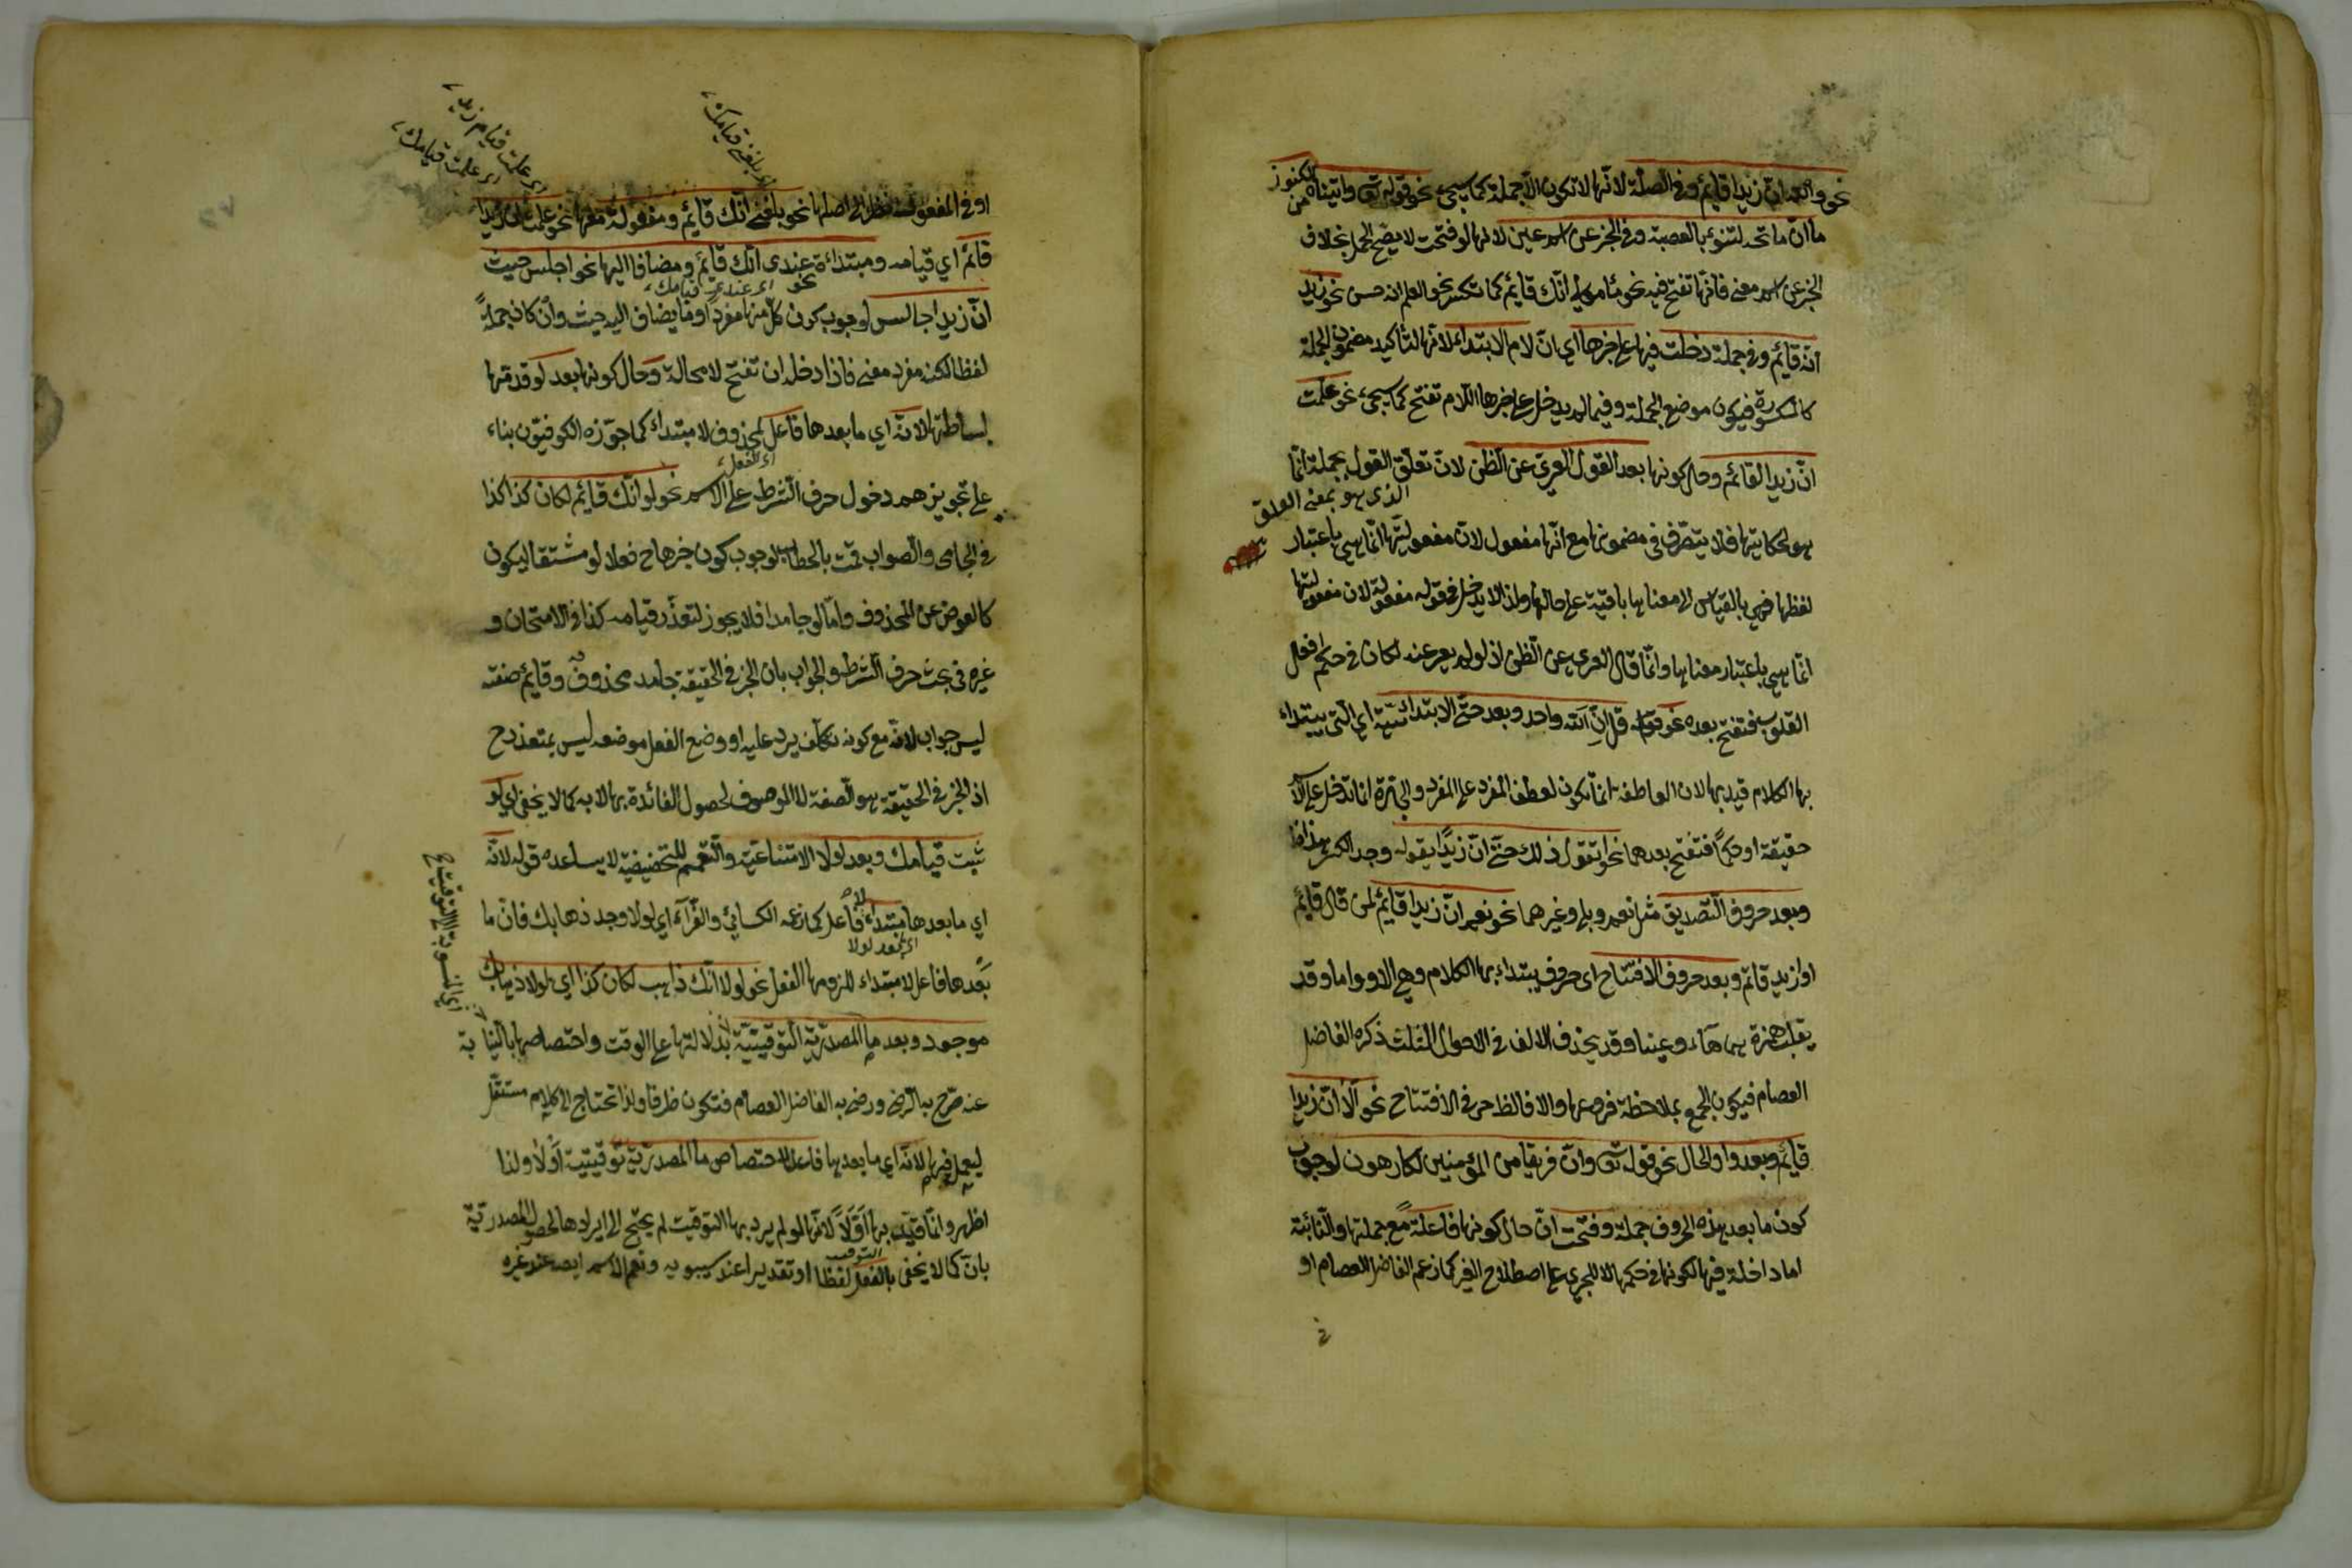 نحو والله ان زيدا قائم وفي الصلة لانها لا تكون الا جملة كما سيجيء نحو قوله تعالى واتيناه من الكنوز
ما ان مفاتحه لتنوء بالعصبة وفي الخبر عن اسم عين لانها لو فتحت لا يصح الحمل بخلاف
الخبر عن اسم معنى فانها تفتح فيه نحو مأمولي انك قائم كما تكسر نحو العلم انه حسن نحو زيد
انه قائم وفي جملة دخلت فيها على خبرها اي ان لام الابتداء لانها لتأكيد مضمون الجملة
كالمكسورة فيكون موضع الجملة وفيما لم يدخل على خبرها اللام تفتح كما سيجيء نحو علمت
ان زيدا لقائم وحال كونها بعد القول العري عن الظن لان تعلق القول بجملة انما
الذي هو بمعنى
هو لحكايتها فلا يتصرف في مضمونها مع انها مفعول لان مفعوليتها انما هي باعتبار
لفظها فهي بالقياس الى معناها باقية على حالها ولذا لا يدخل في قوله مفعولة لان مفعوليتها
انما هي باعتبار معناها وانما قال العري عن الظن اذ لو لم يعر عنه لكان في حكم افعال
القلوب فتفتح بعده نحو قوله قل ان الله واحد وبعد حتى الابتدائية اي التي يبتداء
بها الكلام قيد بها لان العاطفة انما تكون لعطف المفرد على المفرد والجارة انما تدخل على الاسم
حقيقة او حكما فتفتح بعدهما نحو اتقول ذلك حتى ان زيدا يقوله وجد الكسر
وبعد حروف التصديق مثل نعم وبلى وغيرهما نحو نعم ان زيدا قائم لمن قال قائم
او ازيد قائم وبعد حروف الافتتاح اي حروف يبتداء بها الكلام وهي الا واما وقد
يقلب همزة هما هاء وعينا وقد يحذف الالف في الاحوال الثلث ذكره الفاضل
العصام فيكون الجمع بملاحظة فرعها والا فالظ حرفي الافتتاح نحو الا ان زيدا
قائم وبعد واو الحال نحو قوله تعالى وان فريقا من المؤمنين لكارهون لوجوب
كون ما بعد هذه الحروف جملة وفتحت ان حال كونها فاعلة مع جملتها والنائبة
اما داخلة فيها لكونها في حكمها لا للجري على اصطلاح الغير كما زعم الفاضل العصام او
اي بلغني قيامك
اي علمت قيام زيد
اي علمت قيامك
نحو بلغني انك قائم ومفعولة نحو علمت ان زيدا
قائم اي قيامه ومبتداءة عندي انك قائم ومضافا اليها نحو اجلس حيث
نحو اي عندي قيامك
ان زيدا جالس لوجوب كون كل منها مفردا وما يضاف اليه حيث وان كان جملة
لفظا لكنه مفرد معنى فاذا دخله ان تفتح لا محالة وحال كونها بعد لو
لانه اي ما بعدها فاعل لمحذوف لا مبتداء كما جوزه الكوفيون بناء
اي الفعل
على تجويزهم دخول حرف الشرط على الاسم نحو لو انك قائم لكان كذا كذا
في الجامي والصواب قمت بالخطاب لوجوب كون خبرها ح فعلا لو مشتقا ليكون
كالعوض عن المحذوف واما لو جامدا فلا يجوز لتعذر قيامه كذا في الامتحان و
غيره في بحث حرف الشرط والجواب بان الخبر في الحقيقة جامد محذوف وقائم صفته
ليس جواب لانه مع كونه تكلف يرد عليه او وضع الفعل موضعه ليس بمتعذر ح
اذ الخبر في الحقيقة هو الصفة لا الموصوف لحصول الفائدة بها لا به كما لا يخفى اي لو
ثبت قيامك وبعد لولا الامتناعية والتعميم للتحضيضية لا يساعده قوله لانه
اي ما بعدها مبتداء لا فاعل كما زعمه الكسائي والفراء اي لولا وجد ذهابك فان ما
اي بعد لولا
بعدها فاعل لا مبتداء للزومها الفعل نحو لولا انك ذاهب لكان كذا اي لولا ذهابك
موجود وبعد ما المصدرية التوقيتية لدلالتها على الوقت واختصاصها بالنيابة
عنه صرح به الرضي ورضي به الفاضل العصام فتكون ظرفا ولذا تحتاج الى كلام مستقل
ليعمل فيها لانه اي ما بعدها فاعل لاختصاص ما المصدرية توقيتية اولا ولذا
اظهر وانما قيد بها اولا لانها لو لم يرد بها التوقيت لم يحتج الى ايرادها لحصول المصدرية
التوقيت
بان كما لا يخفى بالفعل لفظا او تقديرا عند سيبويه ونعم الاسم ايضا عند غيره